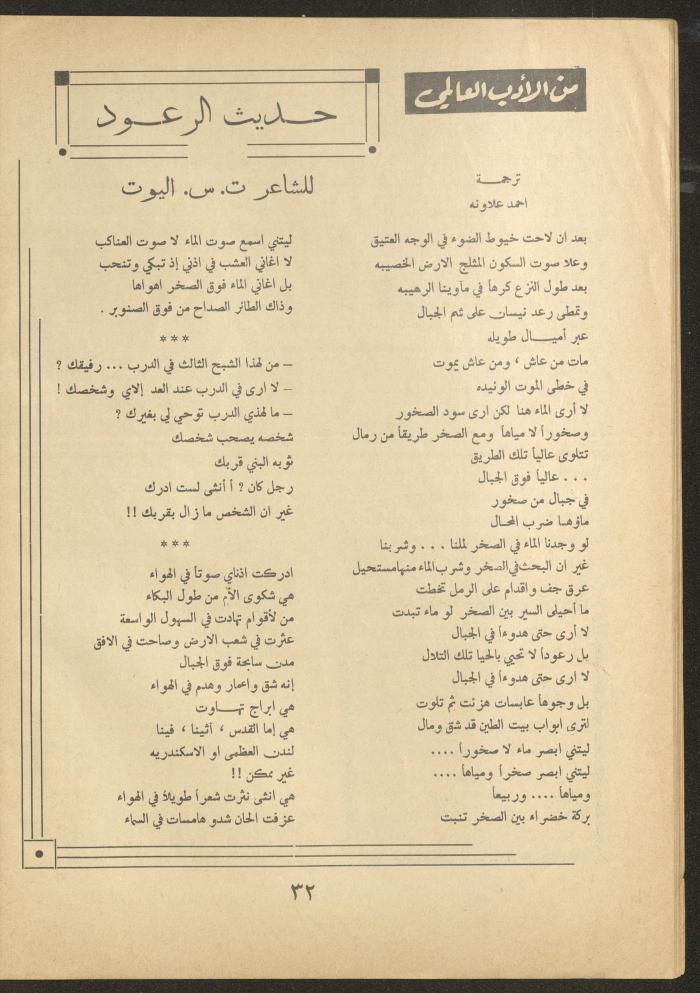 من الأدب العالمي
حديث الرعود
للشاعر ت. س. اليوت
ترجمة
احمد علاونه
بعد ان لاحت خيوط الضوء في الوجه العتيق
وعلا صوت السكون المثلج الارض الخصيبه
بعد طول النزع كرهاً في مآوينا الرهيبه
وتمطى رعد نيسان على شم الجبال
عبر أميال طويله
مات من عاش ، ومن عاش يموت
في خطى الموت الوئيده
لا أرى الماء هنا لكن ارى سود الصخور
وصخوراً لا مياهاً ومع الصخر طريقاً من رمال
تتلوى عالياً تلك الطريق
. . . عالياً فوق الجبال
في جبال من صخور
ماؤها ضرب المحال
لو وجدنا الماء في الصخر لملنا . . . وشربنا
غير ان البحث في الصخر وشرب الماء منها مستحيل
عرق جف واقدام على الرمل تخطت
ما أحيلى السير بين الصخر لو ماء تبدت
لا أرى حتى هدوءاً في الجبال
بل رعوداً لا تحيي بالحيا تلك التلال
لا ارى حتى هدوءاً في الجبال
بل وجوهاً عابسات هزئت ثم تلوت
لترى ابواب بيت الطين قد شق ومال
ليتني ابصر ماء لا صخوراً ....
ليتني ابصر صخراً ومياهاً ....
ومياهاً .... وربيعا
بركة خضراء بين الصخر تنبت
ليتني اسمع صوت الماء لا صوت العناكب
لا اغاني العشب في اذني إذ تبكي وتنحب
بل اغاني الماء فوق الصخر اهواها
وذاك الطائر الصداح من فوق الصنوبر .
* * *
— من لهذا الشبح الثالث في الدرب ... رفيقك ؟
— لا ارى في الدرب عند العد إلاي وشخصك !
— ما لهذي الدرب توحي لي بغيرك ؟
شخصه يصحب شخصك
ثوبه البني قربك
رجل كان ؟ أ أنثى لست ادرك
غير ان الشخص ما زال بقربك !!
* * *
ادركت اذناي صوتاً في الهواء
هي شكوى الأم من طول البكاء
من لأقوام تهادت في السهول الواسعة
عثرت في شعب الارض وصاحت في الافق
مدن سابحة فوق الجبال
إنه شق واعمار وهدم في الهواء
هي ابراج تهاوت
هي إما القدس ، أثينا ، فينا
لندن العظمى او الاسكندريه
غير ممكن !!
هي انثى نثرت شعراً طويلاً في الهواء
عزفت الحان شدو هامسات في السماء
٣٢